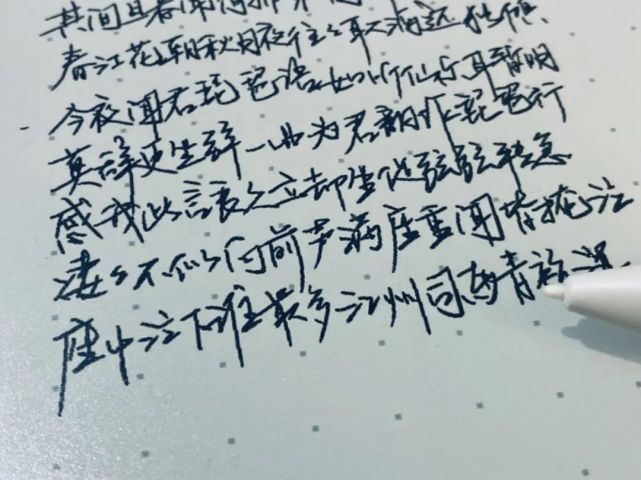 其间旦暮闻何
春江花朝秋月夜往往取酒还独倾
今夜闻君琵琶语如听仙乐耳暂明
莫辞更坐弹一曲为君翻作琵琶行
感我此言良久立却坐促弦弦转急
凄凄不似向前声满座重闻皆掩泣
座中泣下谁最多江州司马青衫湿